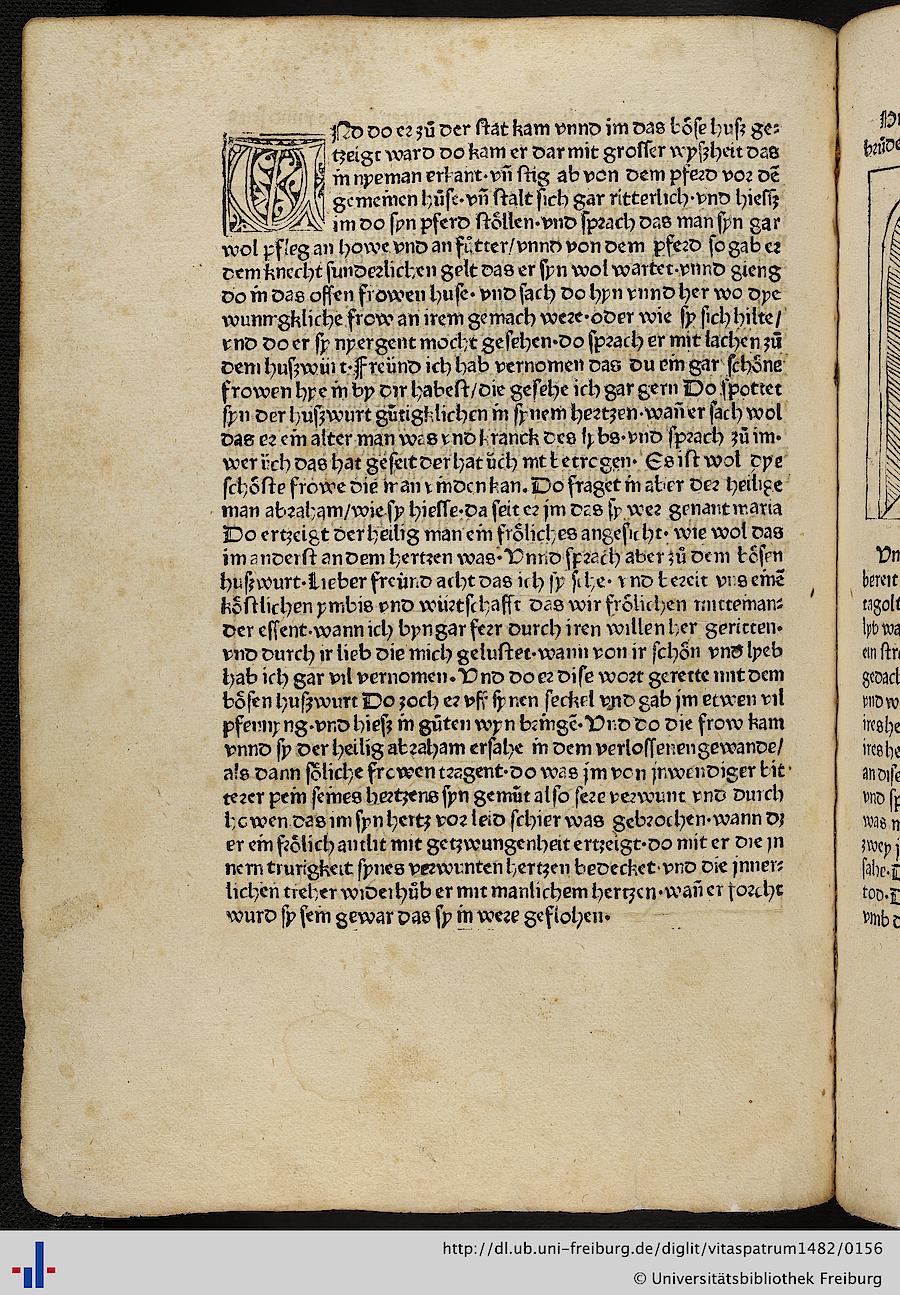 VNd do er zů der stat kam vnnd im das bőse husz ge-
tzeigt ward do kam er dar mit grosser wyszheit das
in nyeman erkant·vñ stig ab von dem pferd vor dē
gemeinen hůse·vñ stalt sich gar ritterlich·vnd hiessz
im do syn pferd stőllen·vnd sprach das man syn gar
wol pfleg an howe vnd an fůtter/vnnd von dem pferd so gab er
dem knecht sunderlichen gelt das er syn wol wartet·vnnd gieng
do in das offen frowen huse·vnd sach do hyn vnnd her wo dye
wunnigkliche frow an irem gemach were·oder wie sy sich hilte/
vnd do er sy nyergent mocht gesehen·do sprach er mit lachen zů
dem huszwürt·Freünd ich hab vernomen das du ein gar schőne
frowen hye in by dir habest/die gesehe ich gar gern Do spottet
syn der huszwurt gůtigklichen in synem hertzen·wañ er sach wol
das er ein alter man was vnd kranck des lybs·vnd sprach zů im·
wer üch das hat geseit der hat üch nit betrogen· Es ist wol dye
schőste frowe die man vinden kan. Do fraget in aber der heilige
man abraham/wie sy hiesse·da seit er jm das sy wer genant maria
Do ertzeigt der heilig man ein frőliches angesicht·wie wol das
im anderst an dem hertzen was·Vnnd sprach aber zů dem bősen
huszwurt·Lieber freünd acht das ich sy sehe·vnd bereit vns einē
kőstlichen ymbis vnd würtschafft das wir frőlichen mitteinan-
der essent·wann ich byn gar ferr durch iren willen her geritten·
vnd durch ir lieb die mich gelustet·wann von ir schőn vnd lyeb
hab ich gar vil vernomen. Vnd do er dise wort gerette mit dem
bősen huszwurt Do zoch er vsz synen seckel vnd gab jm etwen vil
pfennyng·vnd hiesz in gůten wyn bringē·Vnd do die frow kam
vnnd sy der heilig abraham ersahe in dem verlossenen gewande/
als dann sőliche frowen tragent·do was jm von jnwendiger bit
terer pein seines hertzens syn gemůt also sere verwunt vnd durch
howen das im syn hertz vor leid schier was gebrochen·wann dz
er ein frőlich antlit mit getzwungenheit ertzeigt·do mit er die jn
nern trurigkeit synes verwunten hertzen bedecket·vnd die jnner-
lichen treher widerhůb er mit manlichem hertzen·wañ er forcht
wurd sy sein gewar das sy in were geflohen·
http://dl.ub.uni-freiburg.de/diglit/vitaspatrum1482/0156
© Universitätsbibliothek Freiburg